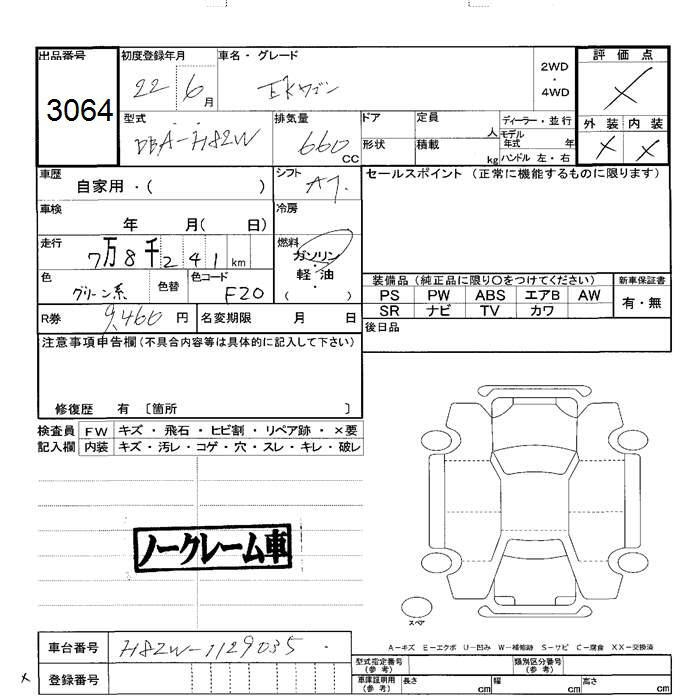 出品番号
3064
初度登録年月
22 6 月
車名・グレード
EKワゴン
2WD
・
4WD
評価点
X
型式
DBA-H82W
排気量
660 CC
ドア
形状
定員 人
積載 kg
ディーラー・並行
モデル年式 年
ハンドル 左・右
外装 内装
X X
車歴
自家用・( )
シフト
AT
セールスポイント (正常に機能するものに限ります)
車検
年 月( 日)
冷房
走行
7万8千241km
燃料
ガソリン
・
軽油
( )
色
グリーン系
色替
色コード
F20
装備品 (純正品に限り〇をつけてください)
新車保証書
PS PW ABS エアB AW
有・無
SR ナビ TV カワ
R券 9,460 円
名変期限 月 日
後日品
注意事項申告欄(不具合内容等は具体的に記入して下さい)
修復歴 有 〔箇所 〕
検査員
記入欄
FW キズ・飛石・ヒビ割・リペア跡・×要
内装 キズ・汚レ・コゲ・穴・スレ・キレ・破レ
ノークレーム車
スペア
A-キズ E-エクボ U-凹み W-補修跡 S-サビ C-腐食 XX-交換済
車台番号 H82W-1129035
x 登録番号
型式指定番号
(参考)
類別区分番号
(参考)
車庫証明用
(参考)
長さ cm
幅 cm
高さ cm